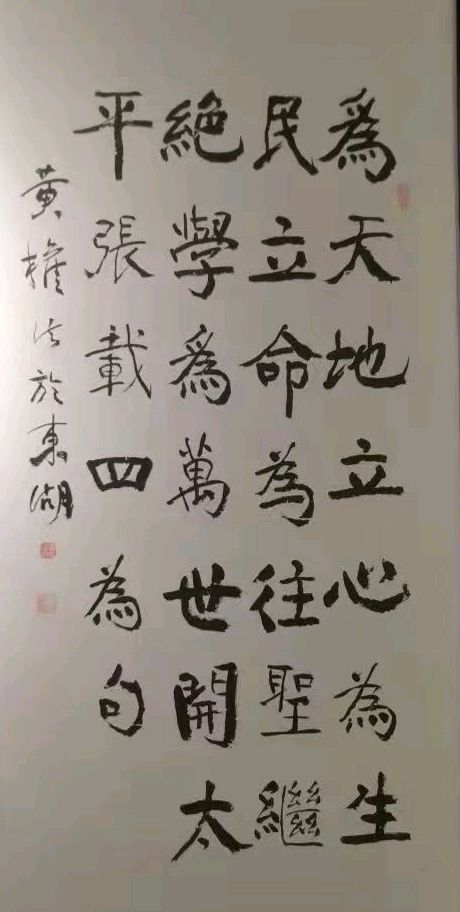 爲天地立心為生
民立命為往聖繼
絶學爲萬世開太
平張載四為句
黄於東湖